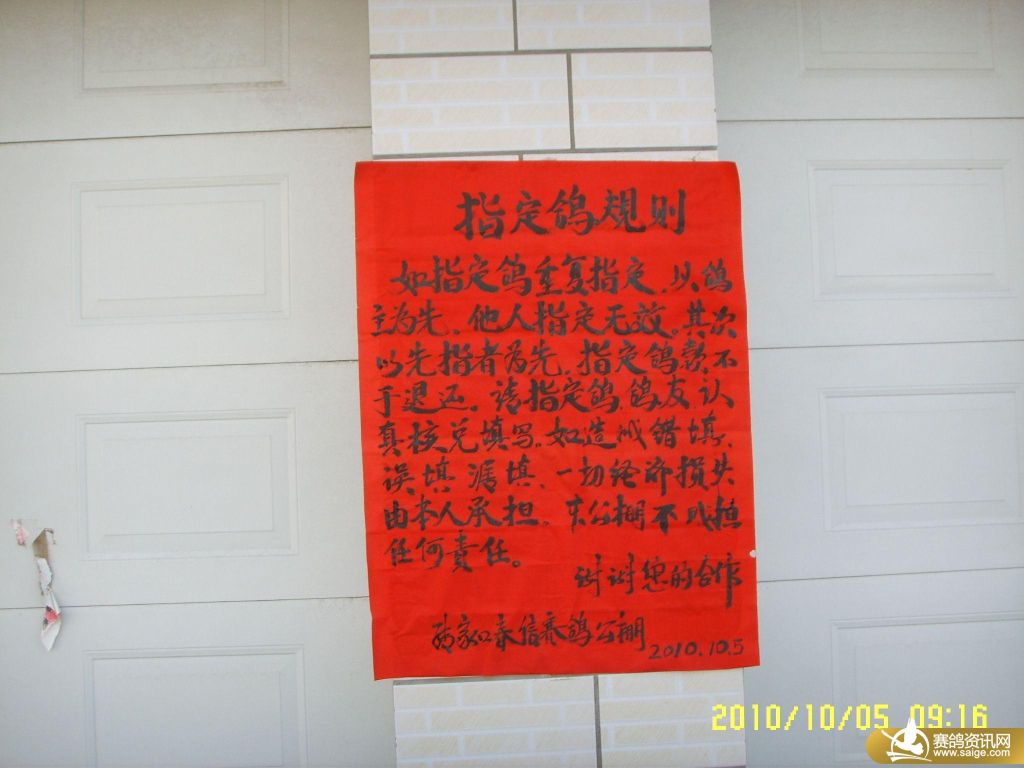 指定鸽规则
如指定鸽重复指定，以鸽
主为先，他人指定无效。其次
以先指者为先，指定鸽款，不
于退还。请指定鸽，鸽友，认
真核兑填写。如造成错填、
误填、漏填，一切经济损失
由本人承担。本公棚不承担
任何責任。
谢谢您的合作
张家口永信赛鸽公棚
2010.10.5
2010/10/05 09:16
赛鸽资讯网
www.saige.com